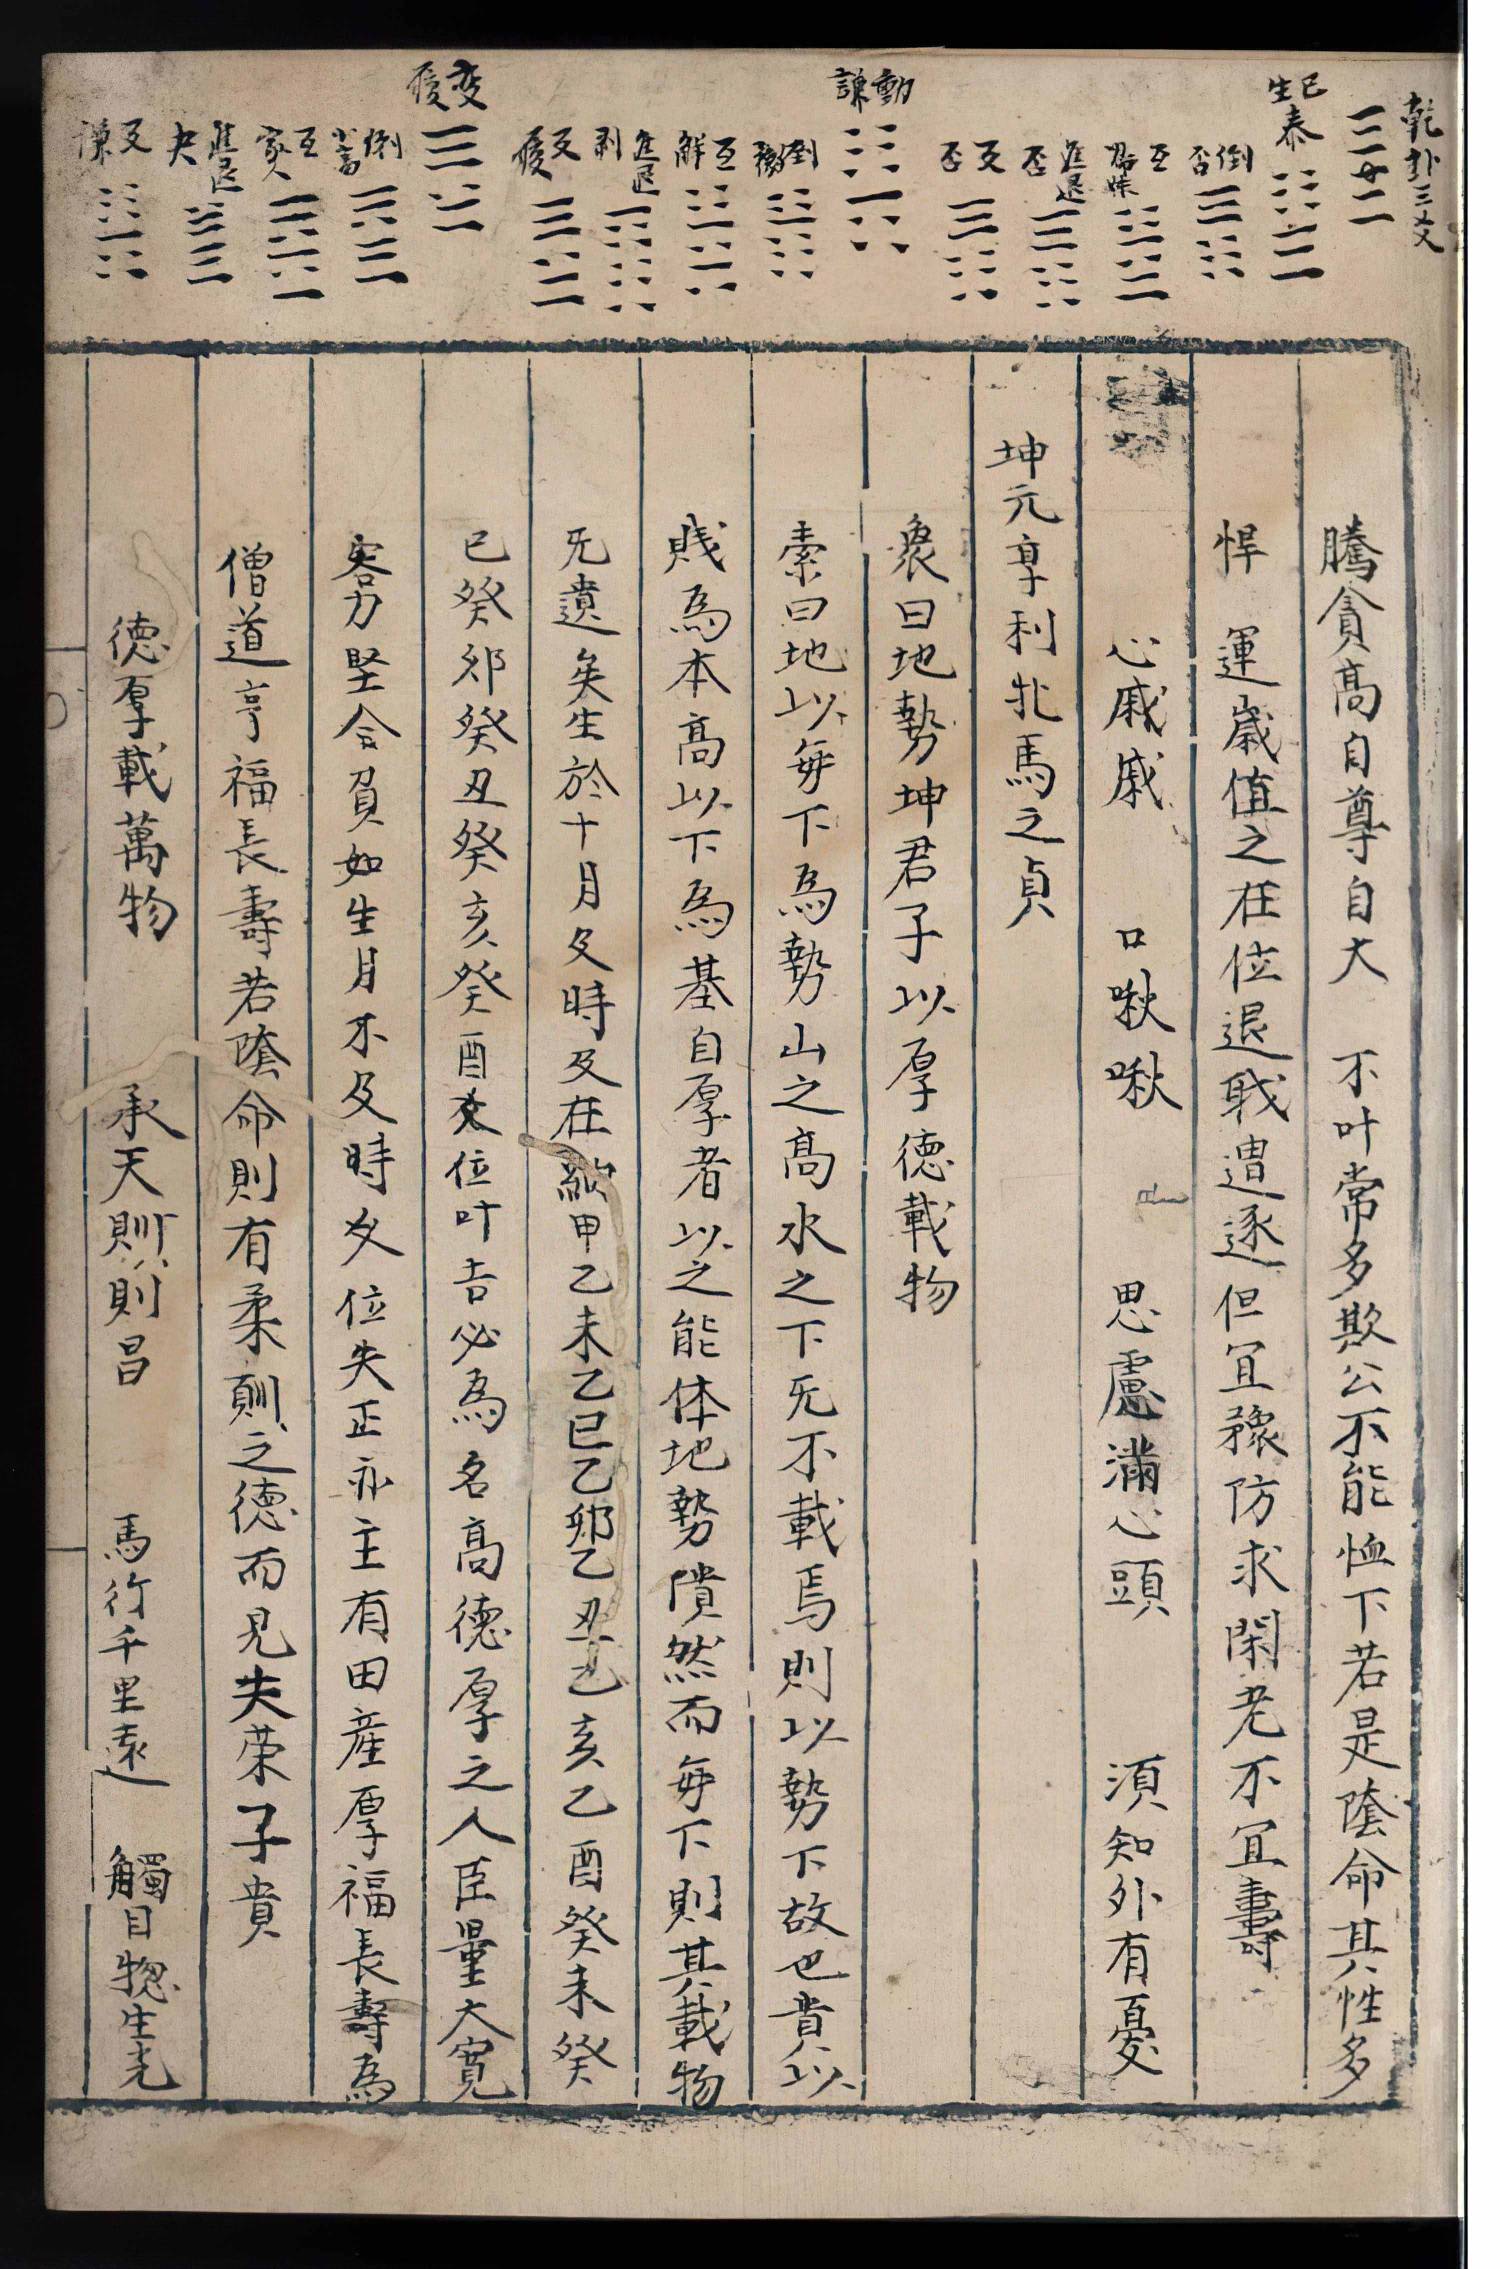 乾卦三爻
已生
泰
倒
否
互
歸妹
進退
否
反
否
動
謙
倒
豫
互
解
進退
剥
反
復
变
履
倒
小畜
互
家人
進退
夬
反
謙
騰貪高自尊自大　不叶常多欺公不能恤下若是陰命其性多
悍　運嵗值之在位退戢遭逐但宜豫防求閑老不宜壽
心戚戚　口啾啾　思慮滿心頭　湏知外有憂
坤元亨利牝馬之貞
衆曰地勢坤君子以厚德載物
素曰地以每下為勢山之高水之下旡不載焉則以勢下故也貴以
賎為本高以下為基自厚者以之能体地勢僨然而每下則其載物
旡遺矣生於十月爻時及在納甲乙未乙巳乙卯乙丑乙亥乙酉癸未癸
巳癸卯癸丑癸亥癸酉爻位叶吉必為名高德厚之人臣量大寛
客力堅合負如生月不及時爻位失正亦主有田産厚福長壽為
僧道亨福長壽若陰命則有柔順之德而見夫荣子貴
德厚載萬物　承天順則昌　馬行千里遠　觸目揔生光